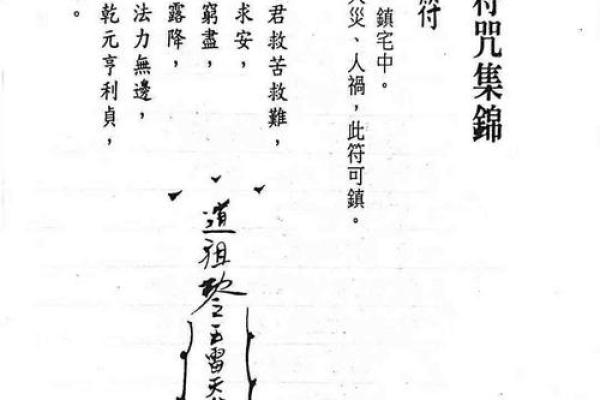 符咒集錦
符
鎮宅中。
災、人禍，此符可鎮。
君救苦救難，
求安，
窮盡，
露降，
法力無邊，
乾元亨利貞，
。
道祖敕令五雷天